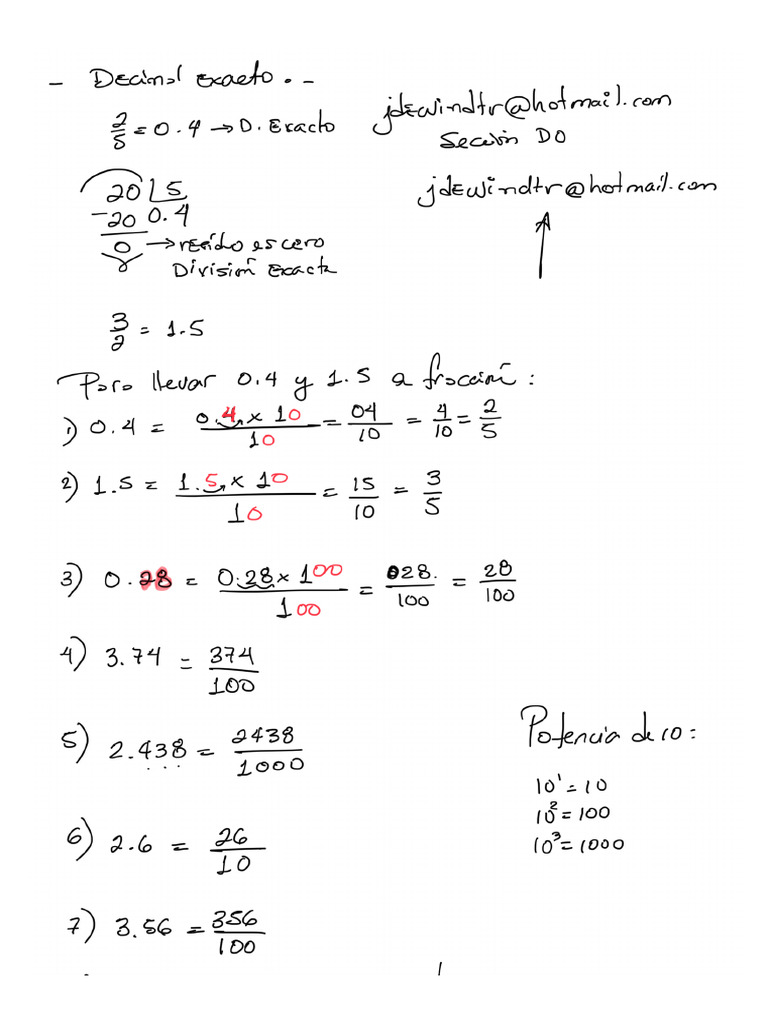 - Decimal exacto. -
2/5 = 0.4 → D. Exacto
jdewindtr@hotmail.com
Sección D0
jdewindtr@hotmail.com
20 | 5
-20 0.4
0 → resido es cero
División Exacta
3/2 = 1.5
Para llevar 0.4 y 1.5 a fracción:
1) 0.4 = 0.4 x 10 / 10 = 04/10 = 4/10 = 2/5
2) 1.5 = 1.5 x 10 / 10 = 15/10 = 3/5
3) 0.28 = 0.28 x 100 / 100 = 028./100 = 28/100
4) 3.74 = 374/100
5) 2.438 = 2438/1000
6) 2.6 = 26/10
7) 3.56 = 356/100
Potencia de 10:
10¹ = 10
10² = 100
10³ = 1000
1